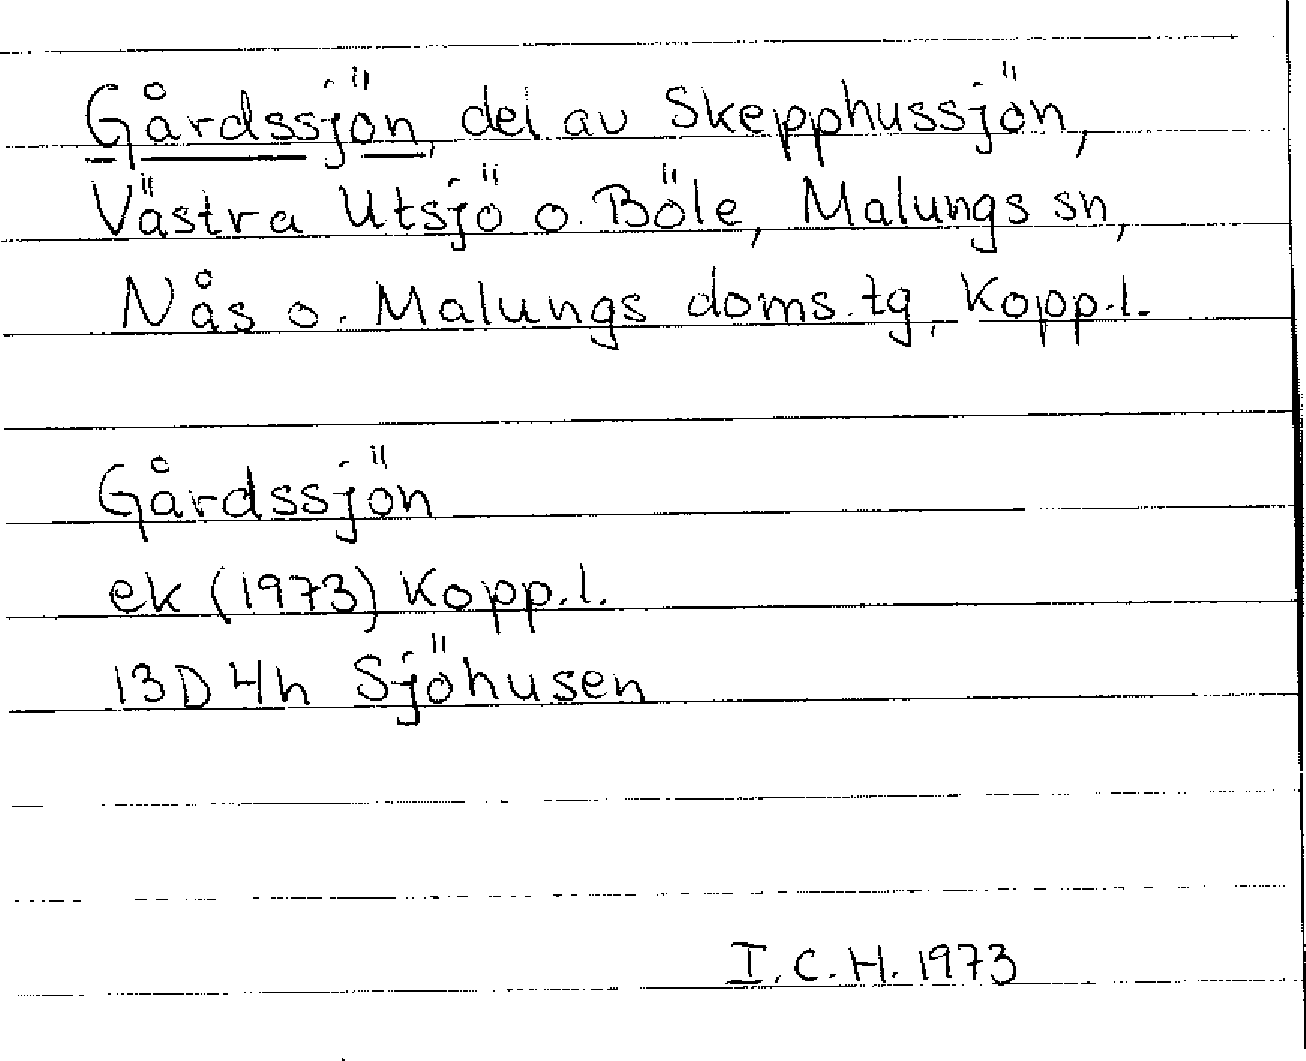 Gårdssjön, del av Skepphussjön,
Västra Utsjö o. Böle, Malungs sn,
Nås o. Malungs doms.tg, Kopp.l.
Gårdssjön
ek (1973) Kopp.l.
13D4h Sjöhusen
I.C.H. 1973